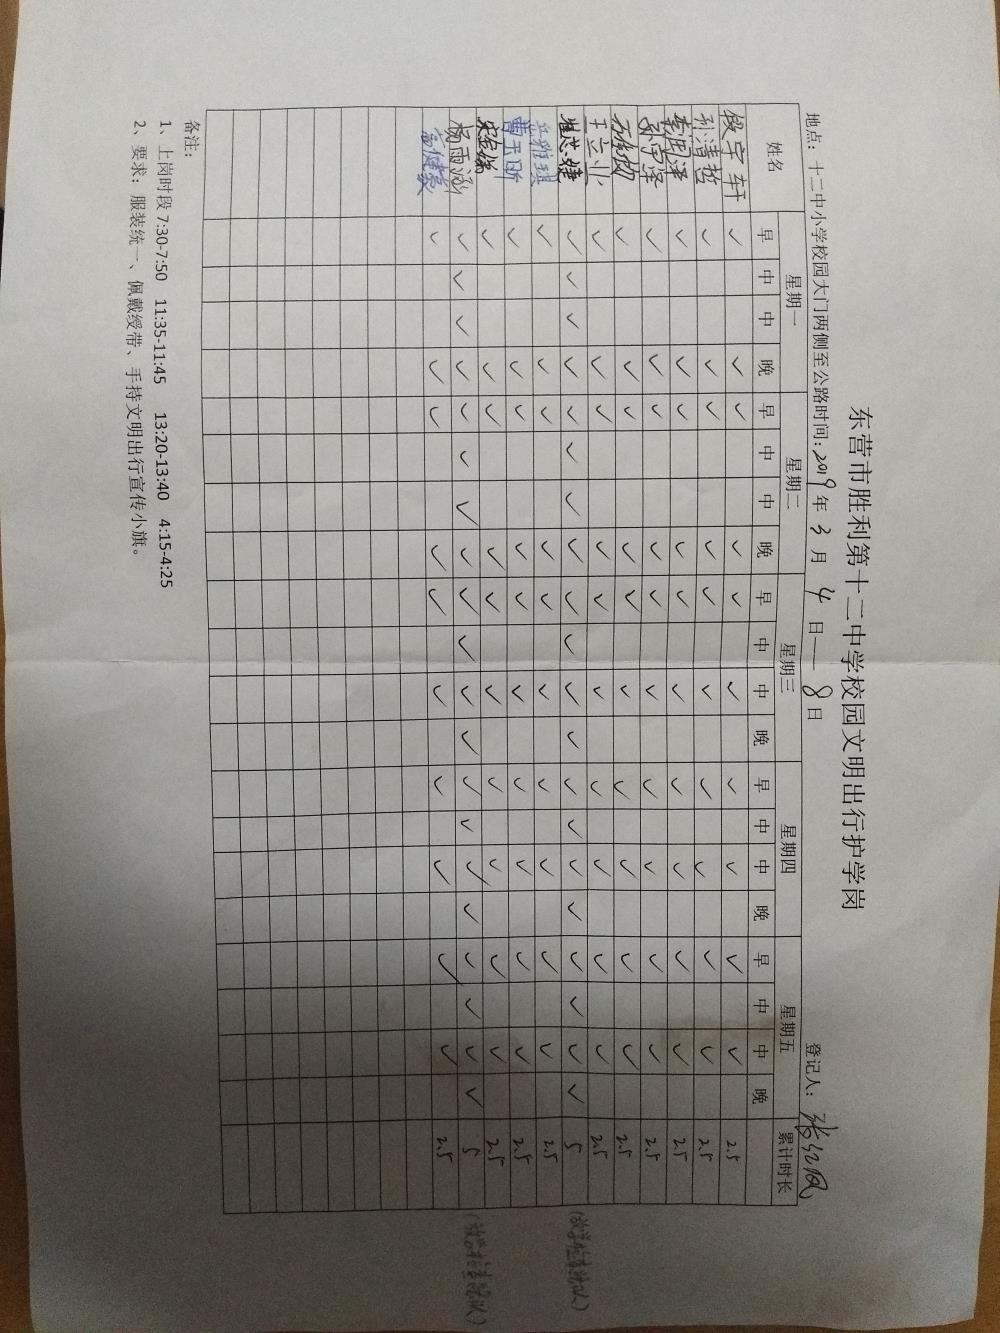 东营市胜利第十二中学校园文明出行护学岗
地点：十二中小学校园大门两侧至公路时间：2019年3月4日——8日 登记人：张红凤
姓名 星期一 星期二 星期三 星期四 星期五 累计时长
早 中 中 晚 早 中 中 晚 早 中 中 晚 早 中 中 晚 早 中 中 晚
段宇轩 ✓ ✓ ✓ ✓ ✓ ✓ ✓ ✓ ✓ ✓ 2.5
孙清哲 ✓ ✓ ✓ ✓ ✓ ✓ ✓ ✓ ✓ ✓ 2.5
✓ ✓ ✓ ✓ ✓ ✓ ✓ ✓ ✓ ✓ 2.5
✓ ✓ ✓ ✓ ✓ ✓ ✓ ✓ ✓ ✓ 2.5
✓ ✓ ✓ ✓ ✓ ✓ ✓ ✓ ✓ ✓ 2.5
王立业 ✓ ✓ ✓ ✓ ✓ ✓ ✓ ✓ ✓ ✓ 2.5
崔芯婕 ✓ ✓ ✓ ✓ ✓ ✓ ✓ ✓ ✓ ✓ ✓ ✓ ✓ ✓ ✓ ✓ ✓ ✓ ✓ ✓ 5 （放学检查站队）
✓ ✓ ✓ ✓ ✓ ✓ ✓ ✓ ✓ ✓ 2.5
✓ ✓ ✓ ✓ ✓ ✓ ✓ ✓ ✓ ✓ 2.5
✓ ✓ ✓ ✓ ✓ ✓ ✓ ✓ ✓ ✓ 2.5
杨雨涵 ✓ ✓ ✓ ✓ ✓ ✓ ✓ ✓ ✓ ✓ ✓ ✓ ✓ ✓ ✓ ✓ ✓ ✓ ✓ ✓ 5 （放学检查站队）
✓ ✓ ✓ ✓ ✓ ✓ ✓ ✓ ✓ ✓ 2.5
备注：
1、上岗时段 7:30-7:50 11:35-11:45 13:20-13:40 4:15-4:25
2、要求：服装统一、佩戴绶带、手持文明出行宣传小旗。